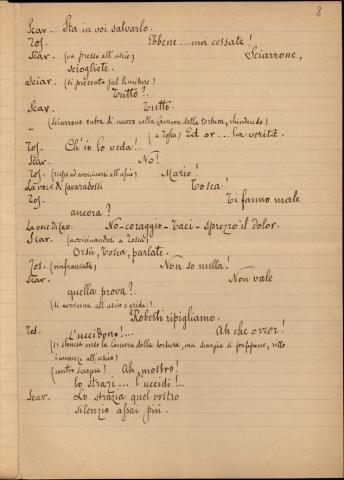 8
Scar. Sta in voi salvarlo.
Tos. Ebbene... ma cessate!
Scar. (va presso all'uscio) Sciarrone,
sciogliete.
Sciar. (si presenta sul limitare)
Tutto?..
Scar. Tutto.
(Sciarrone entra di nuovo nella Camera della tortura, chiudendo)
" (a Tosca) Ed or... la verità.
Tos. Ch'io lo veda!..
Scar. No!
Tos. (riesce ad avvicinarsi all'uscio) Mario!
La voce di Cavaradossi Tosca!
Tos. Ti fanno male
ancora?
La voce di Cav. No - coraggio - Taci - Sprezzo il dolor.
Scar. (avvicinandosi a Tosca)
Orsù, Tosca, parlate.
Tos. (rinfrancata) Non so nulla!
Scar. Non vale
quella prova?
(si avvicina all'uscio e grida:)
Roberti ripigliamo.
Tos. L'uccidono!... Ah che orror!
(si slancia verso la Camera della tortura, ma Scarpia si frappone, ritto
innanzi all'uscio)
(contro Scarpia) Ah, mostro!
lo strazi... l'uccidi!..
Scar. Lo strazia quel vostro
silenzio assai più.